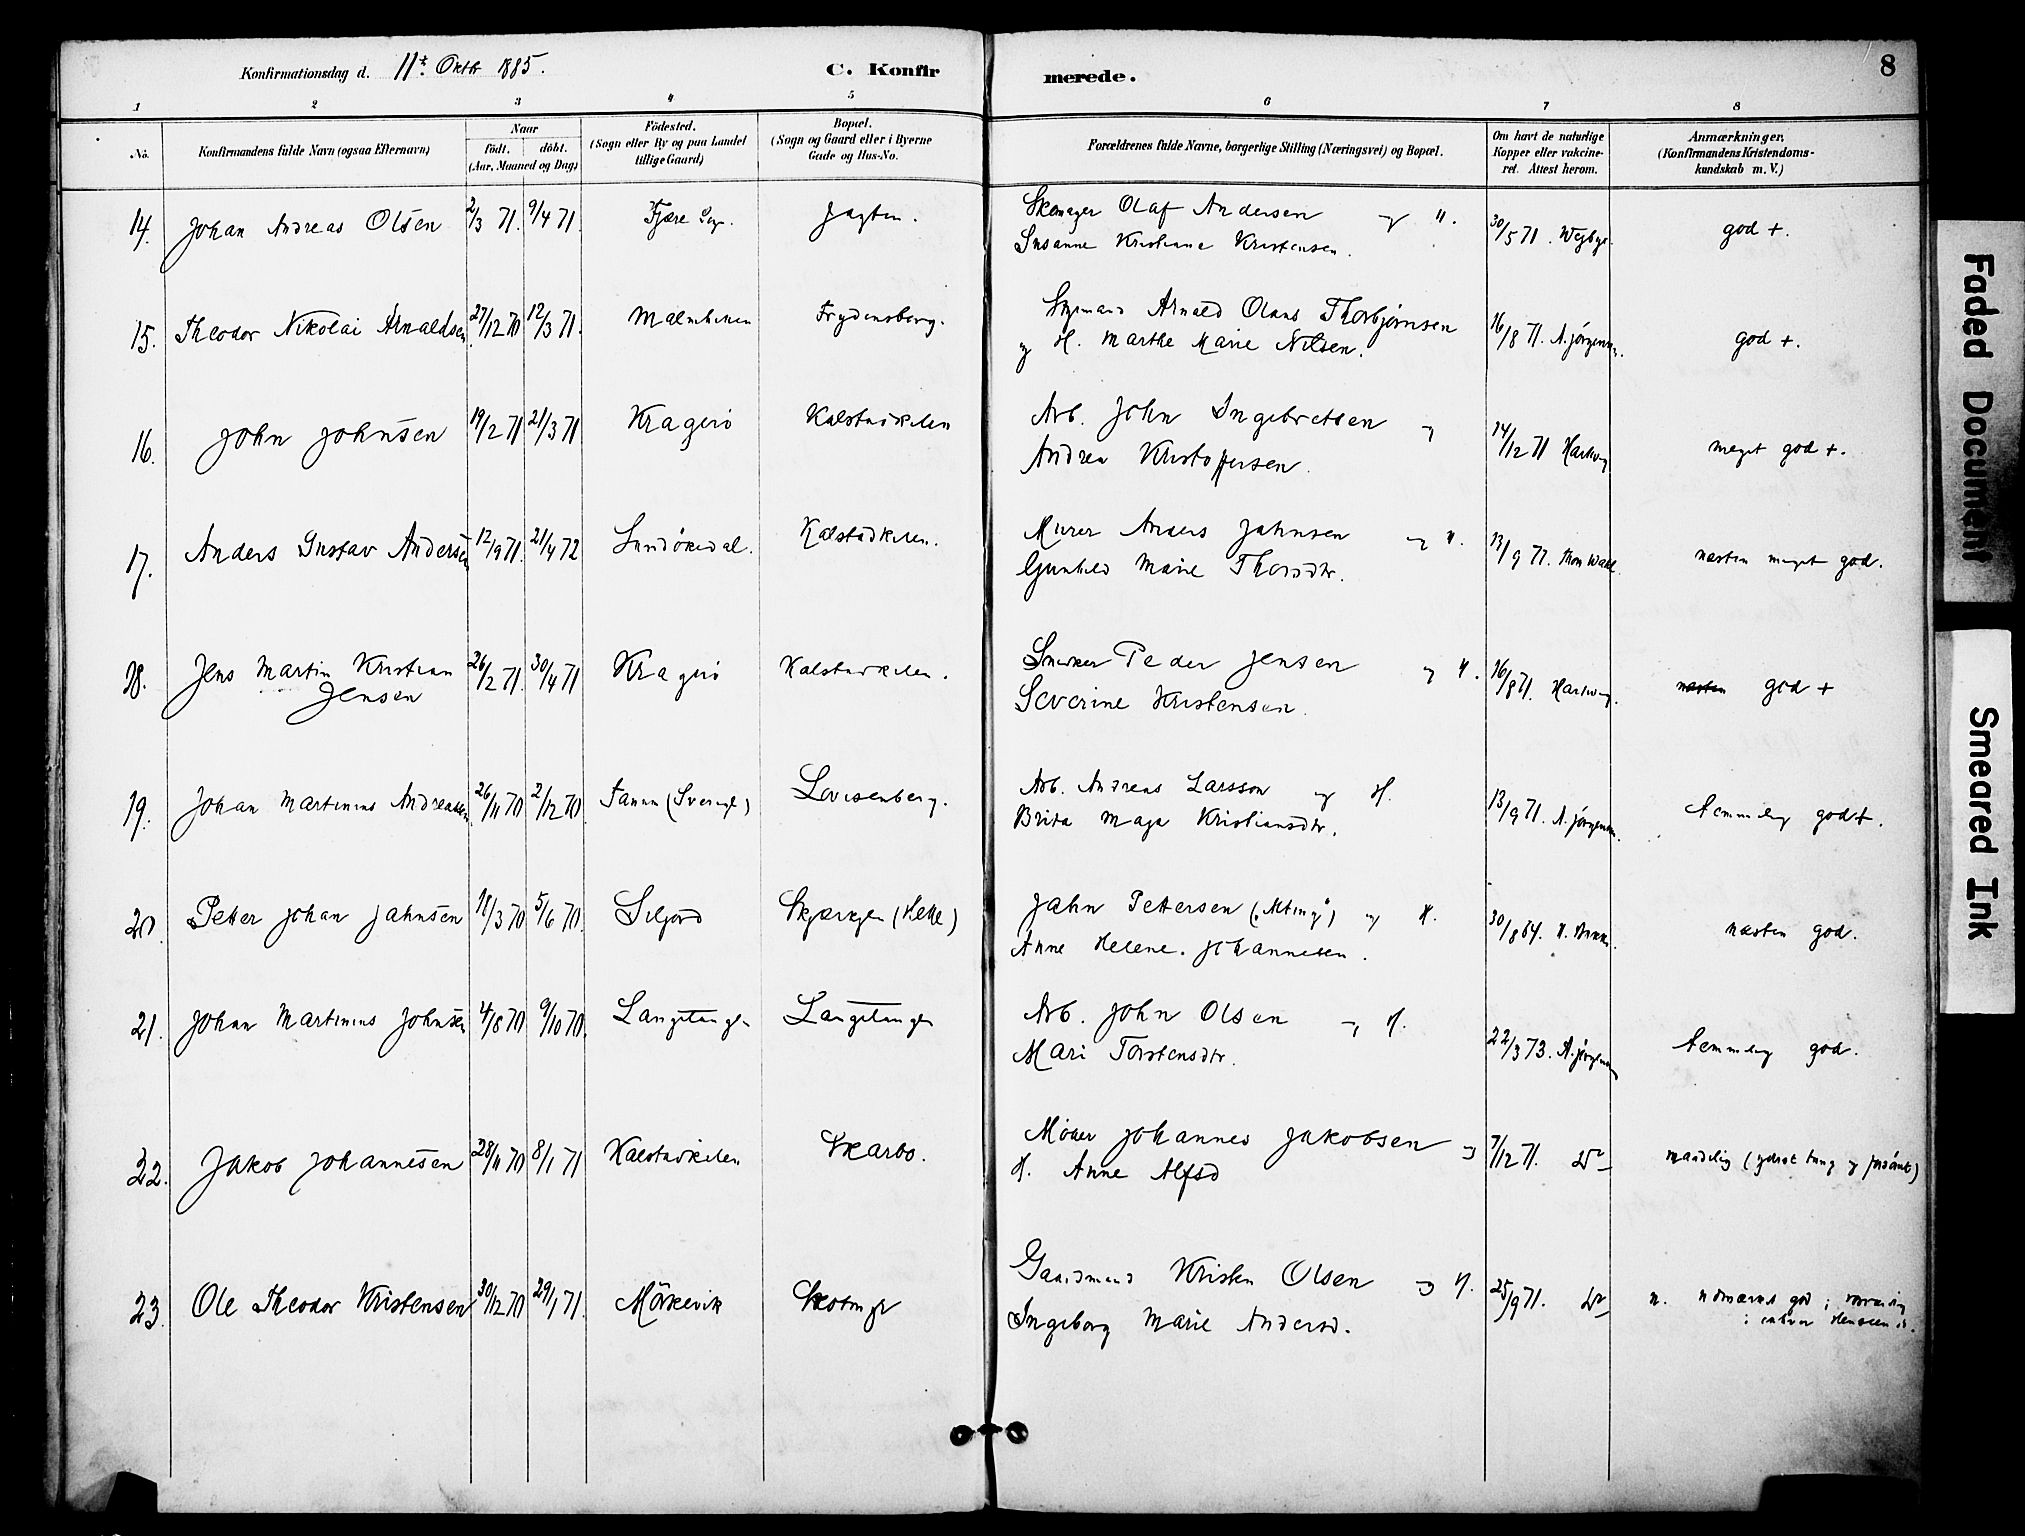 Konfirmationsdag d. 11t. Oktb 1885.
C. Konfirmerede.
8
1 2 3 4 5 6 7 8
No.
Konfirmandens fulde Navn (ogsaa Efternavn)
Naar
født. døbt.
(Aar, Maaned og Dag)
Födested.
(Sogn eller By og paa Landet
tillige Gaard)
Bopæl.
(Sogn og Gaard eller i Byerne
Gade og Hus-No.
Forældrenes fulde Navne, borgerlige Stilling (Næringsvei) og Bopæl.
Om havt de naturlige
Kopper eller vakcine-
ret. Attest herom.
Anmærkninger.
(Konfirmandens Kristendoms-
kundskab m. V.)
14. Johan Andreas Olsen 2/3 71. 9/4 71. Fjære Jagten. Skomager Olaf Andersen og H.
Susanne Kristiane Kristensen. 30/5 71. god +.
15. Theodor Nikolai Arnaldsen 27/12 70 12/3 71. Frydensborg. Arnald Olaus Thorbjørnsen
og H. Marthe Marie Nilsen. 16/8 71. A. Jørgensen. god +.
16. John Johnsen 19/2 71 21/3 71 Kragerö Kalstadkilen Arb. John Ingebretsen og
Andrea Kristoffersen. 14/12 71 meget god +.
17. Anders Gustav Andersen 12/9 71. 21/4 72 Sandökedal. Kalstadkilen. Murer Anders Jahnsen og H.
Gunhild Marie Thorsdtr. 13/9 71. næsten meget god.
18. Jens Martin Kristian
Jensen 26/2 71. 30/4 71 Kragerö Kalstadkilen. Snedker Peder Jensen og H.
Severine Kristensen. 16/8 71. næsten god +
19. Johan Martinius Andreassen 26/11 70 2/12 70 Tanum (Sverige) Lovisenberg. Arb. Andreas Larsson og H.
Brita Maja Kristiansdtr. 13/9 71. A. Jørgensen. temmelig god +.
20. Petter Johan Jahnsen 18/3 70 5/6 70. Siljord Jahn Pettersen og H.
Anne Helene Johannesen. 30/8 64. næsten god.
21. Johan Martinius Johnsen 4/8 70 9/10 70. Langetangen Langetangen Arb. John Olsen og H.
Mari Torstensdtr. 22/3 73. A. Jørgensen temmelig god.
22. Jakob Johannesen 28/11 70 8/1 71 Kalstadkilen Skarbo. Johannes Jakobsen og
H. Anne Alfsd 7/12 71. Do maadelig
23. Ole Theodor Kristensen 30/12 70 29/1 71. Mörkevik Gaardmand Kristen Olsen og H.
Ingeborg Marie Andersd. 25/9 71. Do
i enhver Henseende.
Faded Document
Smeared Ink